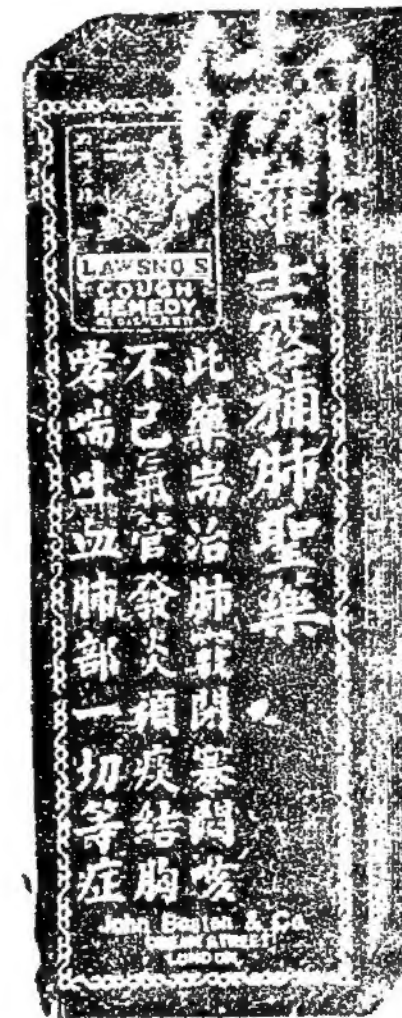 羅士露補肺聖藥
LAWSNO'S
COUGH
REMEDY
此藥耑治肺竅閉塞悶咳
不已氣管發炎頑痰結胸
哮喘吐血肺部一切等症
John & Co.
STREET
LONDON